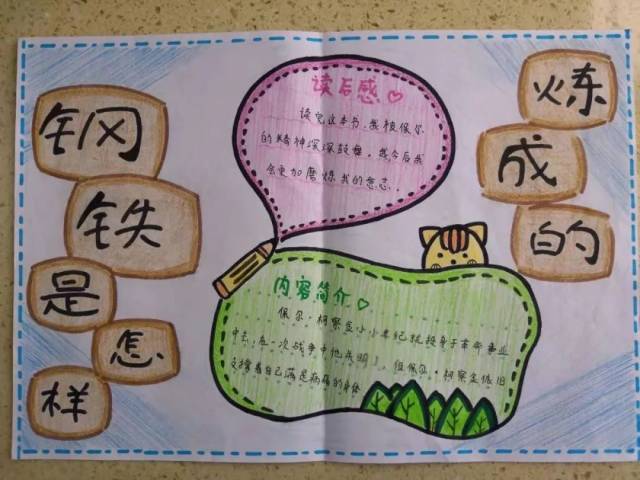 钢
铁
是
怎
样
炼
成
的
读后感
读完这本书,我被保尔
的精神深深鼓舞,我今后我
会更加磨炼我的意志..
内容简介
保尔·柯察金小小年纪就投身于革命事业
中去,在一次战争中他失明了,但保尔·柯察金依旧
支撑着自己满是病痛的身体